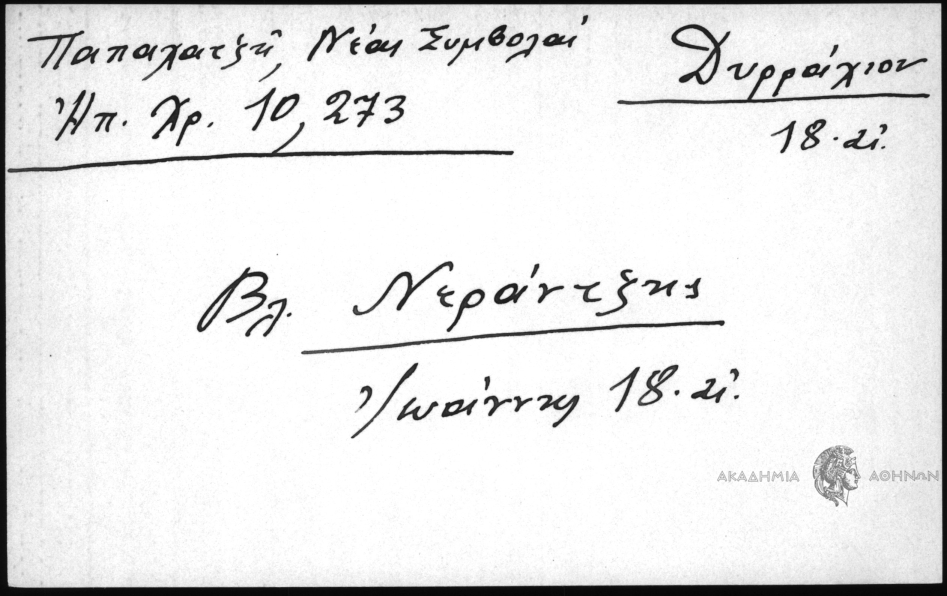 Παπαχατζῆ, Νέαι Συμβολαί
Ἠπ. Χρ. 10, 273
Δυρράχιον
18. αἰ.
Βλ. Νεράντζης
Ἰωάννης 18. αἰ.
ΑΚΑΔΗΜΙΑ ΑΘΗΝΩΝ